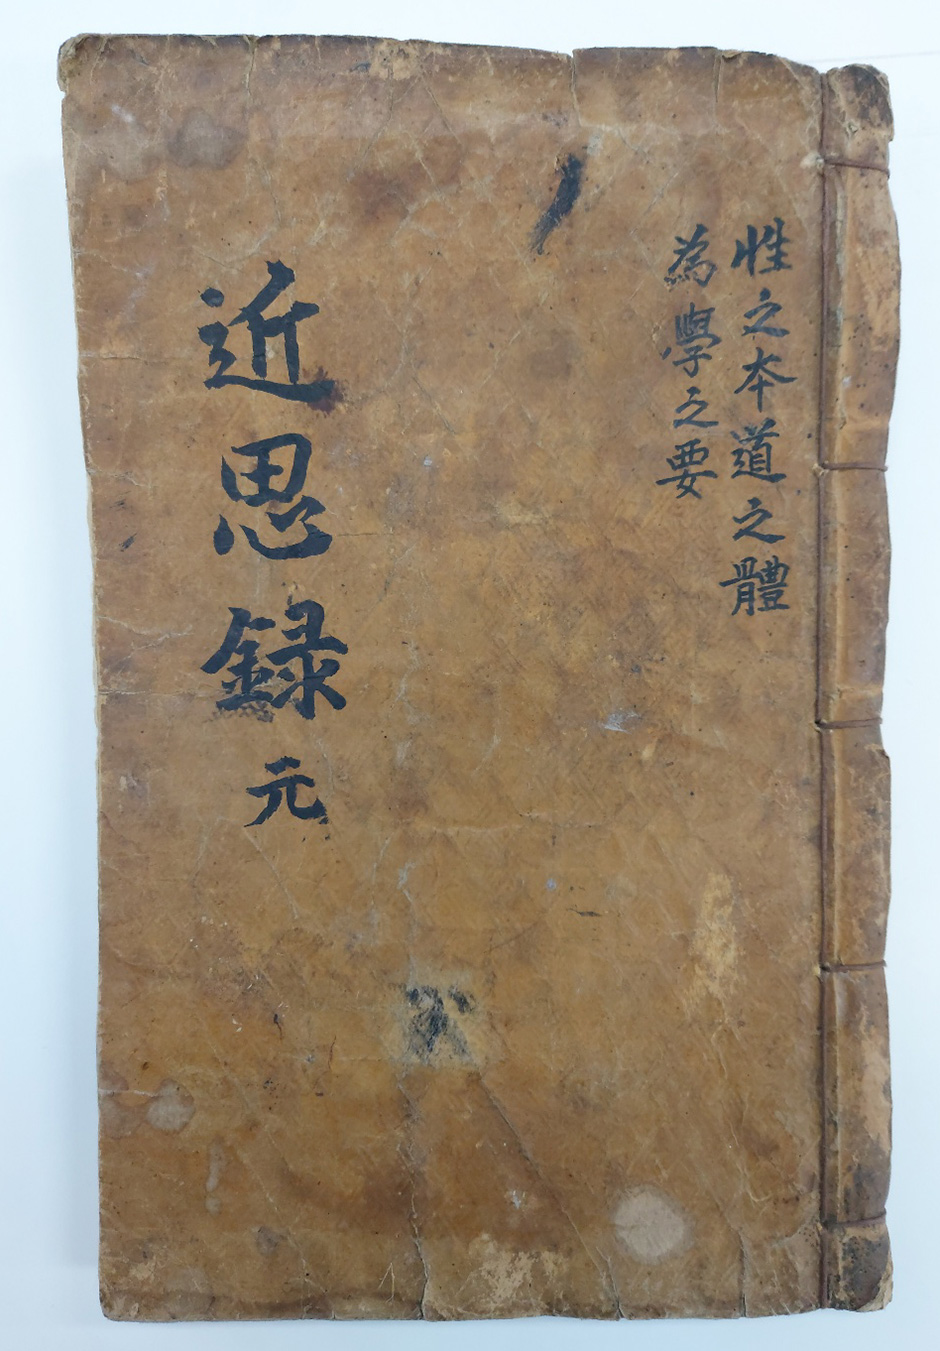 性之本道之體
為學之要
近思録元